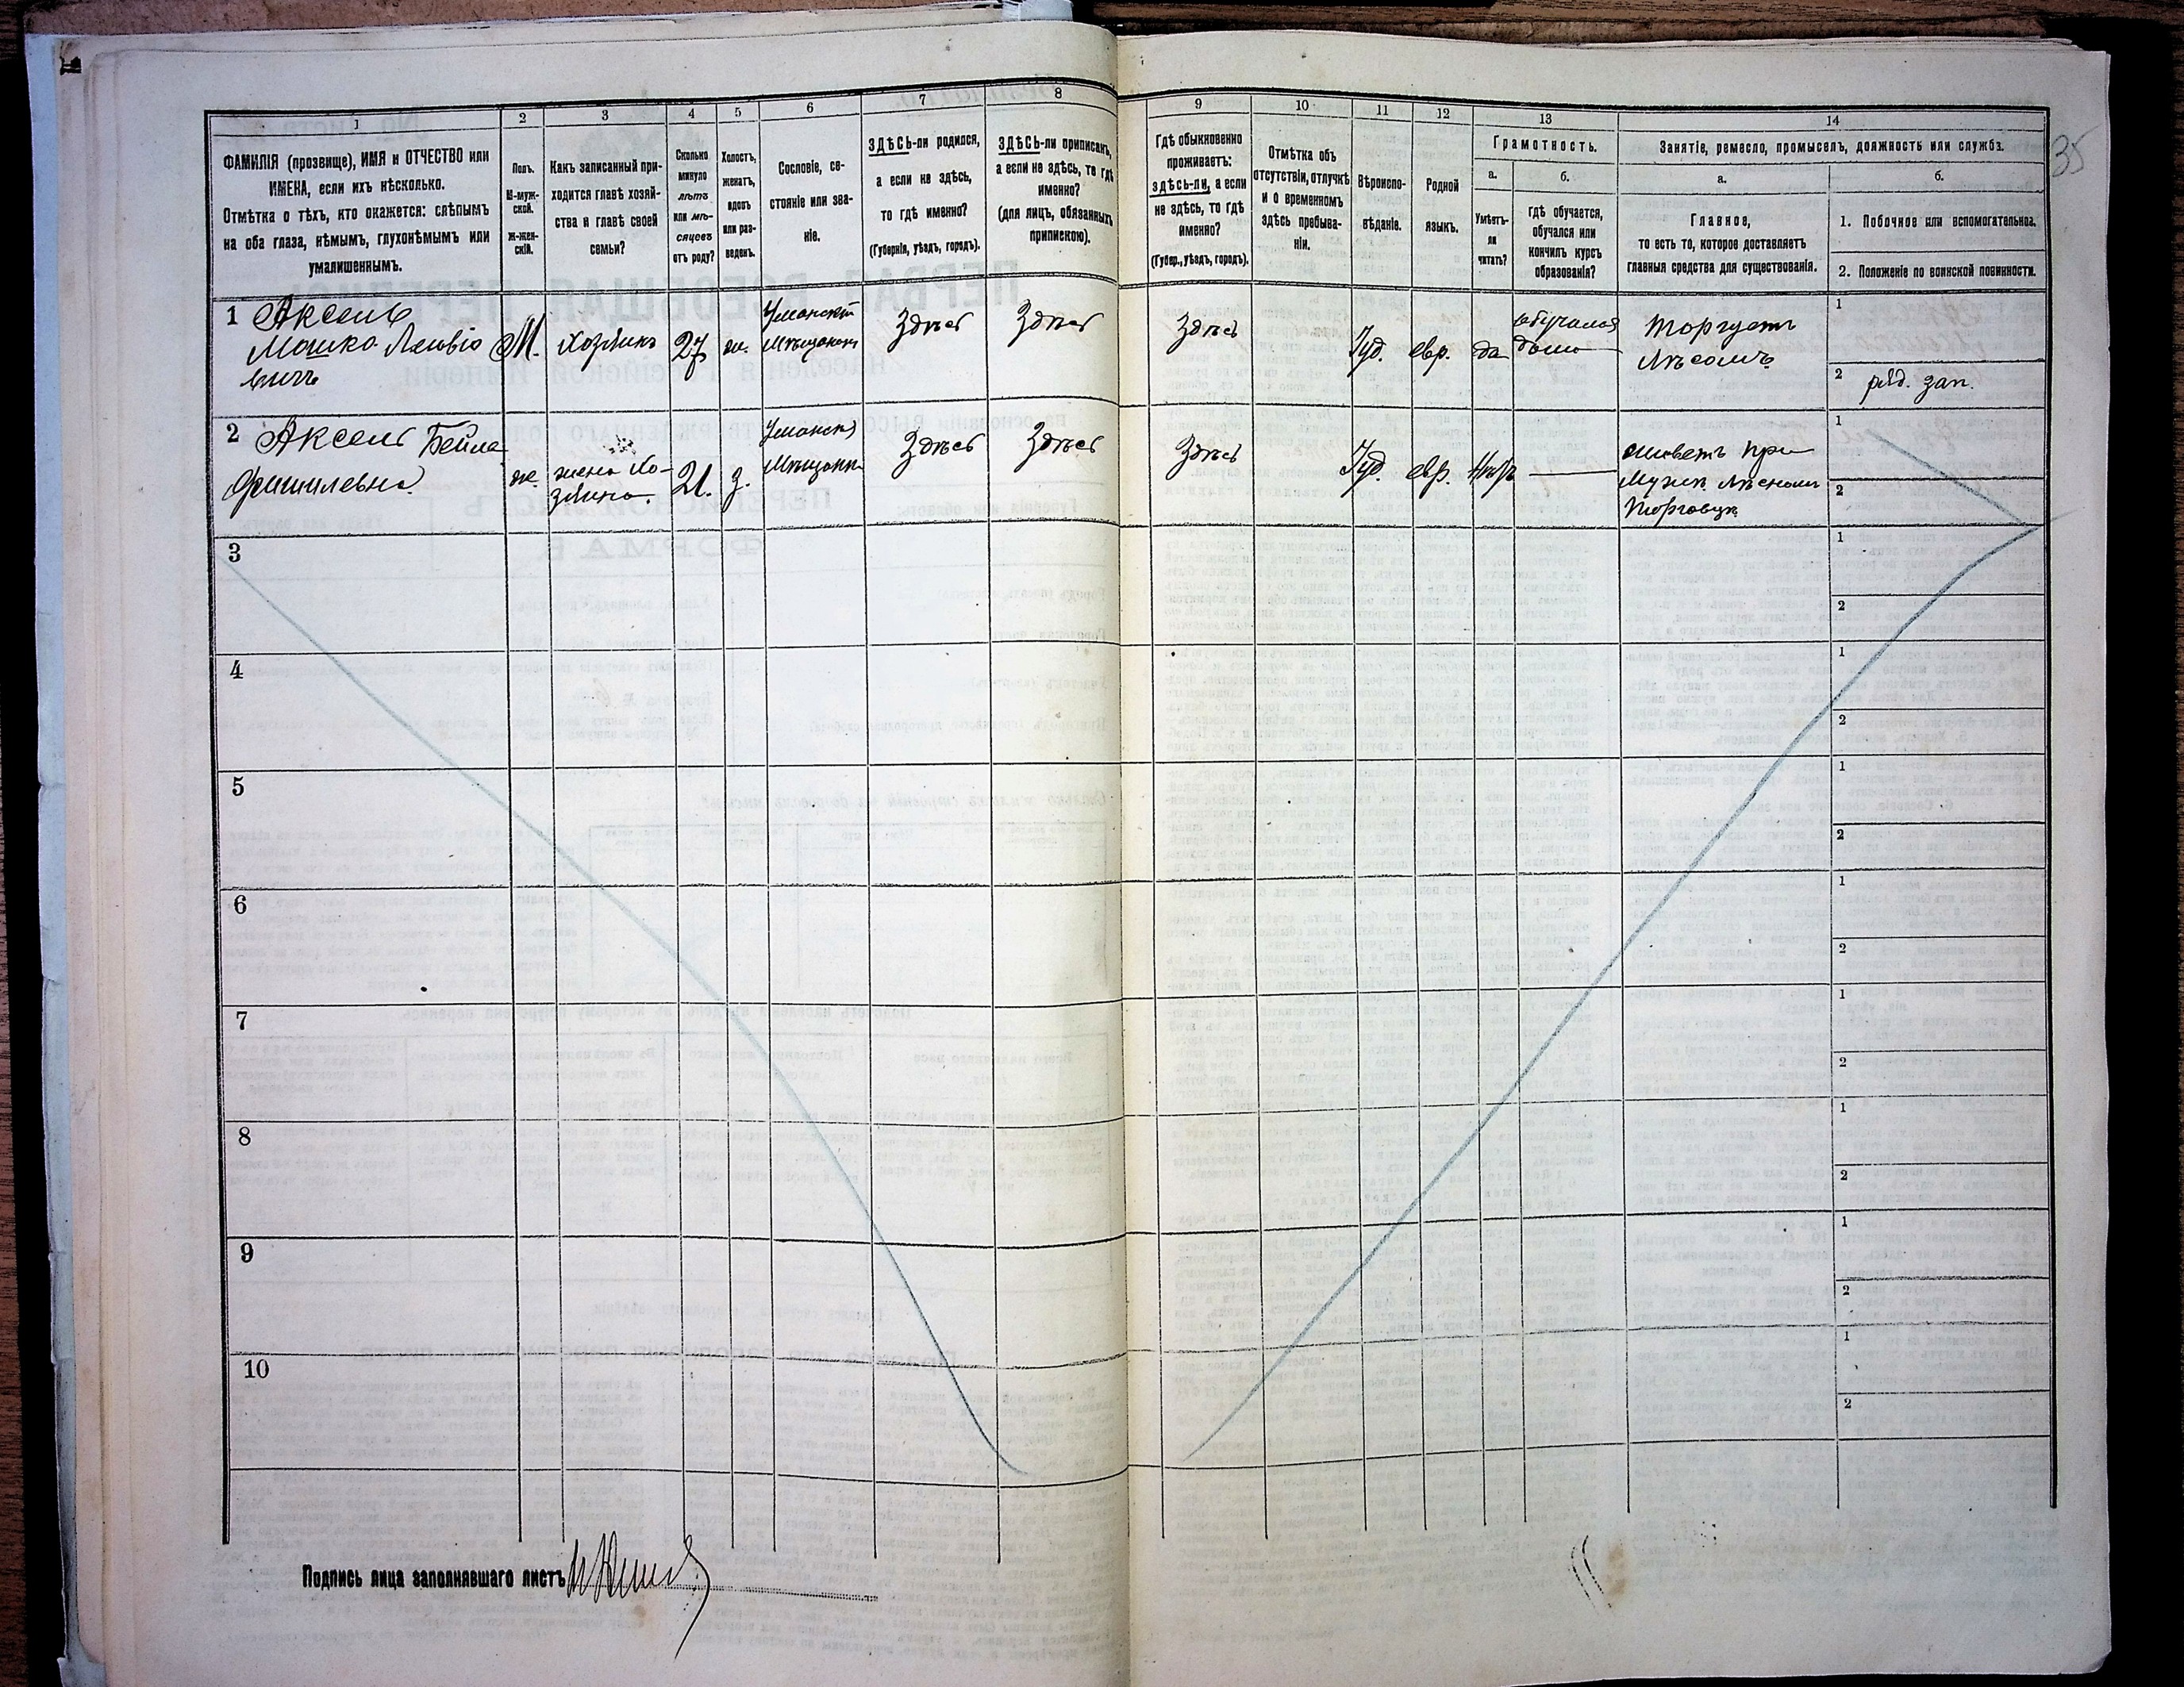 35
1
2
3
4
5
6
7
8
9
10
11
12
13
14
ФАМИЛІЯ (прозвище), ИМЯ и ОТЧЕСТВО или
ИМЕНА, если ихъ нѣсколько.
Отмѣтка о тѣхъ, кто окажется: слѣпымъ
на оба глаза, нѣмымъ, глухонѣмымъ или
умалишеннымъ.
Полъ.
М-муж-
ской.
Ж-жен-
скій.
Какъ записанный при-
ходится главѣ хозяй-
ства и главѣ своей
семьи?
Сколько
минуло
лѣтъ
или мѣ-
сяцевъ
отъ роду?
Холостъ,
женатъ,
вдовъ
или раз-
веденъ.
Сословіе, со-
стояніе или зва-
ніе.
ЗДѢСЬ-ли родился,
а если не здѣсь,
то гдѣ именно?
(Губернія, уѣздъ, городъ).
ЗДѢСЬ-ли приписанъ,
а если не здѣсь, то гдѣ
именно?
(для лицъ, обязанныхъ
припискою).
Гдѣ обыкновенно
проживаетъ:
здѣсь-ли, а если
не здѣсь, то гдѣ
именно?
(Губер., уѣздъ, городъ).
Отмѣтка объ
отсутствіи, отлучкѣ
и о временномъ
здѣсь пребыва-
ніи.
Вѣроиспо-
вѣданіе.
Родной
языкъ.
Грамотность.
а.
Умѣетъ-
ли
читать?
б.
Гдѣ обучается,
обучался или
кончилъ курсъ
образованія?
Занятіе, ремесло, промыселъ, должность или служба.
а.
Главное,
то есть то, которое доставляетъ
главныя средства для существованія.
б.
1. Побочное или вспомогательное.
2. Положеніе по воинской повинности.
1 Аксель
Мошко Лейвіо
вичъ
М.
хозяинъ
27
ж.
Уманскій
мѣщанинъ
Здѣсь
Здѣсь
Здѣсь
Іуд.
евр.
да
обучался
дома
Торгуетъ
лѣсомъ
1
2 ряд. зап.
2 Аксель Бейла
Фишилевна
ж.
жена хо-
зяина.
21.
з.
Уманск.
мѣщанк.
Здѣсь
Здѣсь
Здѣсь
Іуд.
евр.
нѣтъ
живетъ при
мужѣ лѣсном
торговцѣ
1
2
3
1
2
4
1
2
5
1
2
6
1
2
7
1
2
8
1
2
9
1
2
10
1
2
Подпись лица заполнявшаго листъ